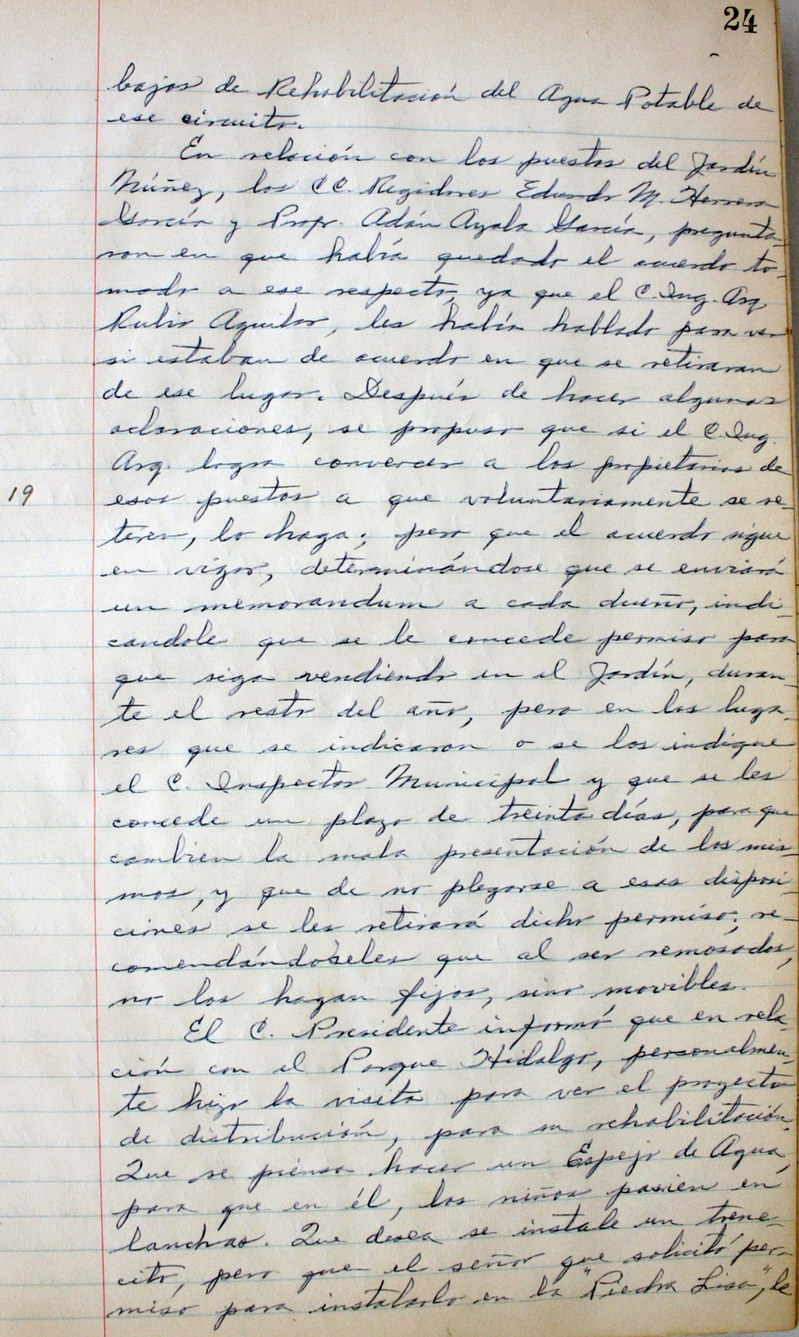 24
bajos de Rehabilitación del Agua Potable de
ese circuito.
En relación con los puestos del Jardín
Núñez, los CC. Regidores Eduardo M. Herrera
García y Profr. Adán Ayala García, pregunta-
ron en que había quedado el acuerdo to-
mado a ese respecto, ya que el C. Ing. Arq.
Rubio Aguilar, les había hablado para ver
si estaban de acuerdo en que se retiraran
de ese lugar. Después de hacer algunas
aclaraciones, se propuso que si el C. Ing.
Arq. logra convencer a los propietarios de
19
esos puestos a que voluntariamente se re-
tiren, lo haga; pero que el acuerdo sigue
en vigor, determinándose que se enviará
un memorandum a cada dueño, indi-
candole que se le concede permiso para
que siga vendiendo en el Jardín, duran-
te el resto del año, pero en los luga-
res que se indicaron o se los indique
el C. Inspector Municipal y que se les
concede un plazo de treinta días, para que
cambien la mala presentación de los mis-
mos, y que de no plegarse a esas disposi-
ciones se les retirará dicho permiso; re-
comendándoseles que al ser remosados,
no los hagan fijos, sino movibles.
El C. Presidente informó que en rela-
ción con el Parque Hidalgo, personalmen-
te hizo la visita para ver el proyecto
de distribución, para su rehabilitación.
Que se piensa hacer un Espejo de Agua,
para que en él, los niños paseen en
lanchas. Que desea se instale un trene-
cito, pero que el señor que solicitó per-
miso para instalarlo en la "Piedra Lisa", le